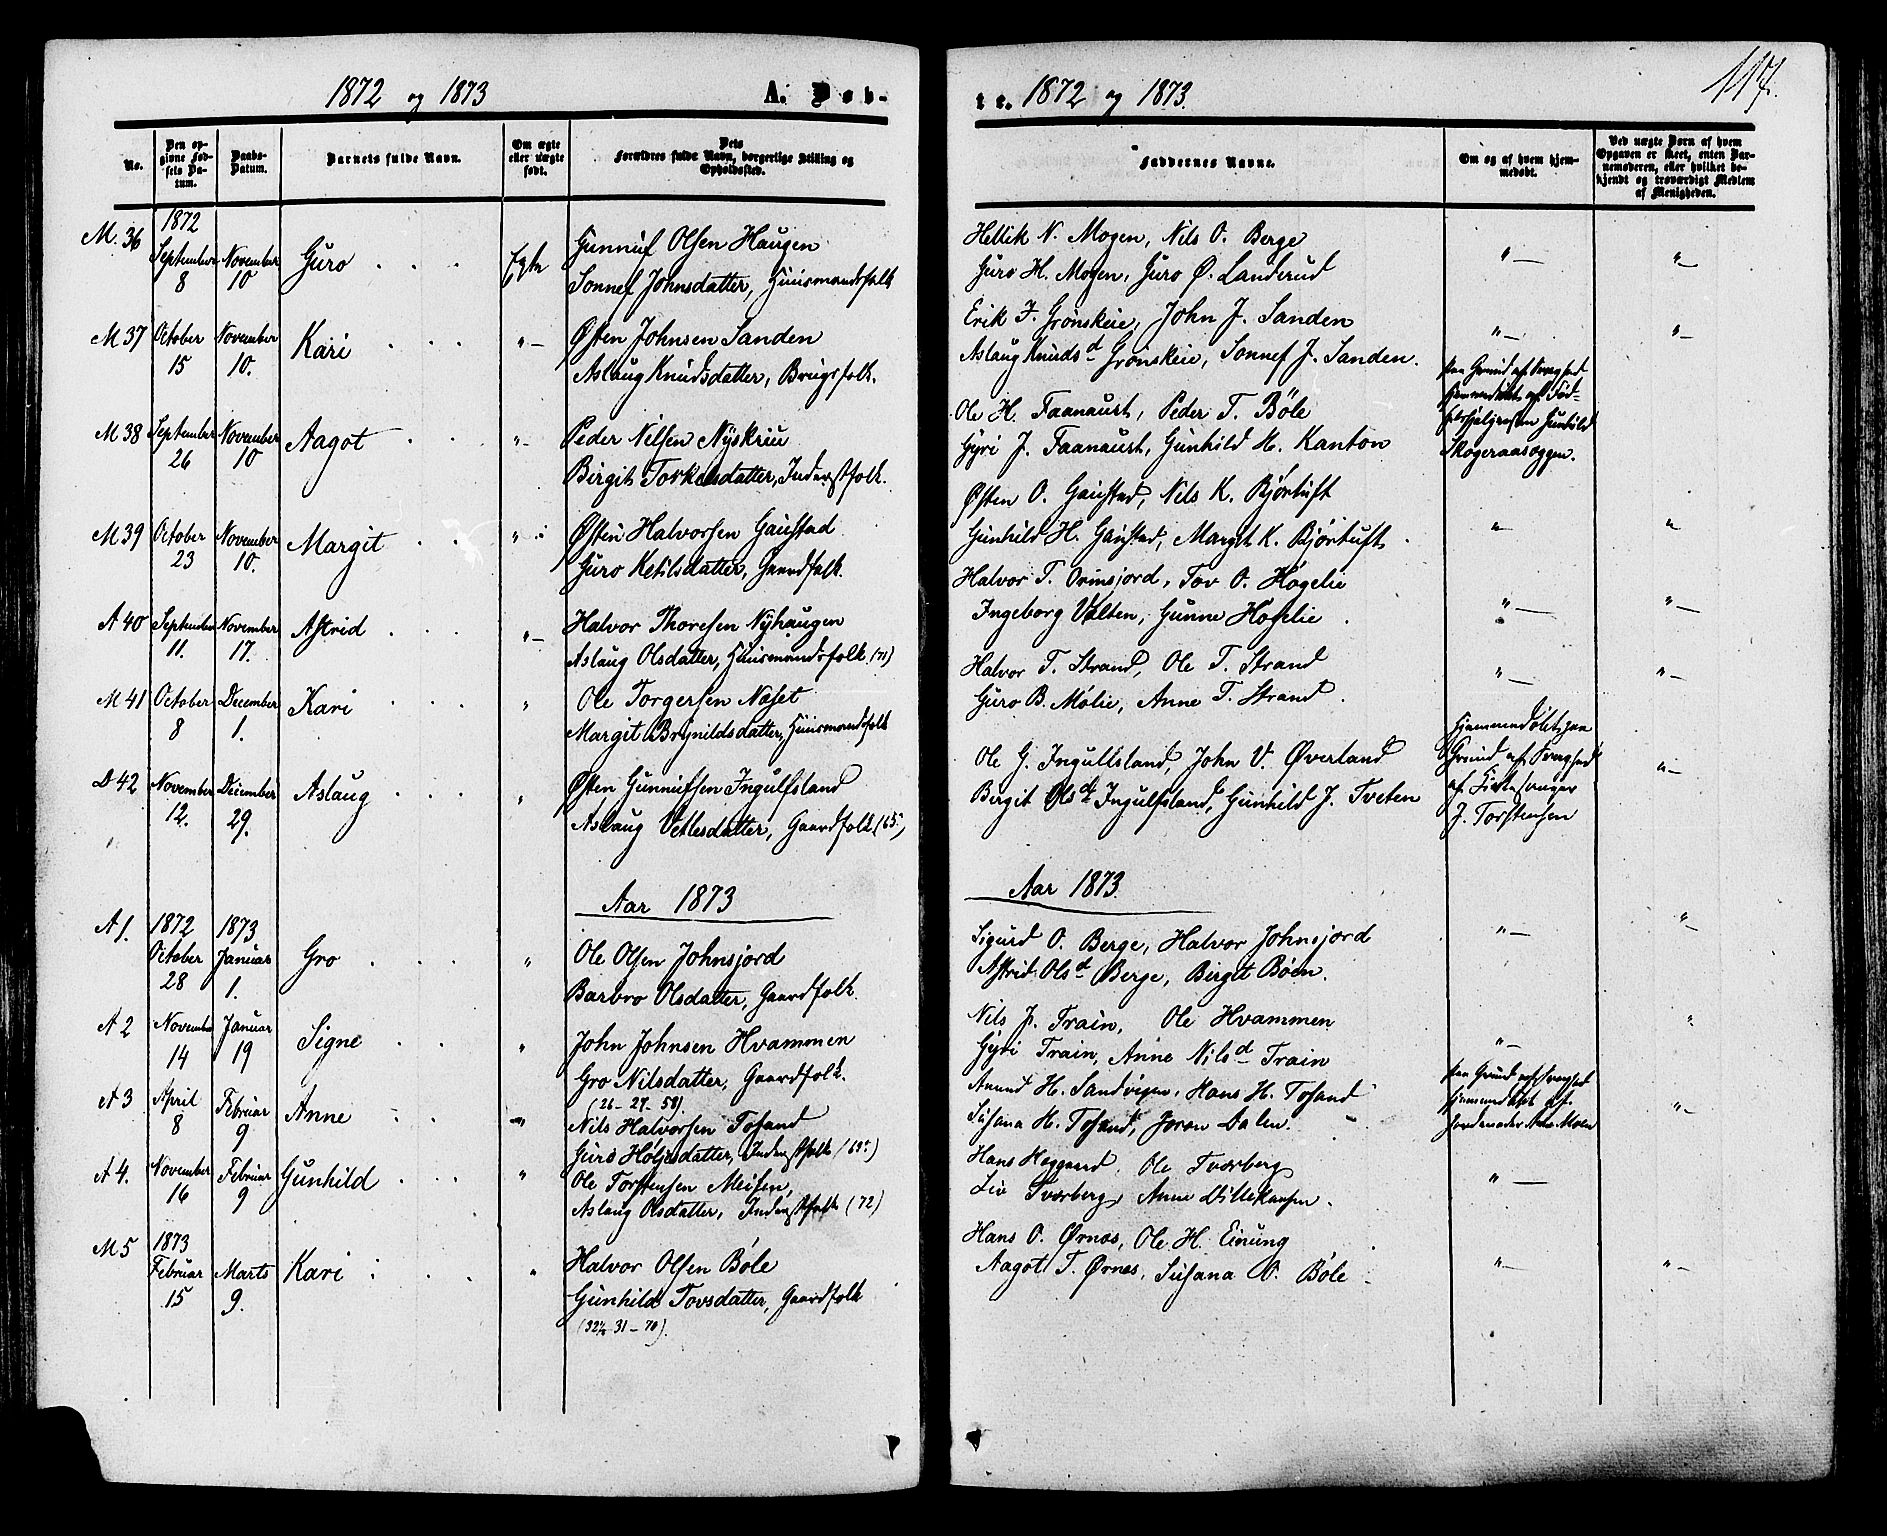 1872 og 1873 A. Døb-
No.
Den opgivne Fødsels Datum.
Daabs-Datum.
Barnets fulde Navn.
Om ægte eller uægte født.
Dets Forældres fulde Navn, borgerlige Stilling og Opholdssted.
M. 36 1872 September 8 November 10 Guro Egte Gunnuf Olsen Haugen
Sonnef Johnsdatter, Huusmandsfolk
M 37 October 15 November 10. Kari "— Østen Johnsen Sanden
Aslaug Knudsdatter, Brugsfolk.
M 38 September 26 November 10 Aagot "— Peder Nilsen Nyskreu
Birgit Torkelsdatter, Inderstfolk.
M 39 October 23 November 10. Margit " Østen Halvorsen Gaustad
Guro Ketilsdatter, Gaardfolk.
A 40 September 11. November 17. Astrid "— Halvor Thoresen Nyhaugen
Aslaug Olsdatter, Huusmandsfolk (71)
M 41 October 8 December 1. Kari " Ole Torgersen Næset
Margit Brynildsdatter, Huusmandsfolk
D 42 November 12. December 29. Aslaug " Østen Gunnufsen Ingulfsland
Aslaug Vetlesdatter, Gaardfolk (65)
Aar 1873
A 1. 1872 October 28 1873 Januar 1. Gro " Ole Olsen Johnsjord
Barbro Olsdatter, Gaardfolk.
A 2 November 14 Januar 19 Signe " John Johnsen Hvammen
Gro Nilsdatter, Gaardfolk.
(26-27-58).
A 3 April 8 Februar 9 Anne "— Nils Halvorsen Tosand
Guro Holjesdatter, Inderstfolk (65)
A 4. November 16 Februar 9 Gunhild " Ole Torstensen Meisen,
Aslaug Olsdatter, Inderstfolk (72)
M 5 1873 Februar 15 Marts 9. Kari " Halvor Olsen Bøle
Gunhild Tovsdatter, Gaardfolk
(32½ 31-70).
te. 1872 og 1873. 117.
Faddernes Navne.
Om og af hvem hjemmedøbt.
Ved uægte Børn af hvem Opgaven er skeet, enten Barnemoderen, eller hvilket bekjendt og troværdigt Medlem af Menigheden.
Hellik N. Mogen, Nils O. Berge
Guro H. Mogen, Guro Ø. Landerud
"— "—
Erik J. Grønskeie, John J. Sanden
Aslaug Knudsd. Grønskeie, Sonnef J. Sanden.
"— "—
Ole H. Faanaust, Peder T. Bøle
Gyri J. Faanaust, Gunhild H. Kanton
paa Grund af Svaghed
hjemmedøbt af Fød-
selshjelpersken Gunhild
Skogeraasoggen.
Østen O. Gaustad, Nils K. Bjørtuft
Gunhild H. Gaustad, Margit K. Bjørtuft
"— "
Halvor T. Ormsjord, Tov O. Høgelie
Ingeborg Valten, Gunne Høgelie
"— "—
Halvor T. Strand, Ole T. Strand
Guro B. Mølie, Anne T. Strand
"— "—
Ole G. Ingulfsland, John V. Øverland
Birgit Olsd. Ingulfsland, Gunhild J. Tveten
Hjemmedøbt paa
Grund af Svaghed
af Kirkesanger
J. Torstensen
"—
Aar 1873.
Sigurd O. Berge, Halvor Johnsjord
Astrid Olsd. Berge, Birgit Bøen.
"— "
Nils J. Train, Ole Hvammen
Gyri Train, Anne Nilsd. Train
"— "
Amund H. Sandvigen, Hans H. Tosand
Susana H. Tosand, Joron Dalen.
paa Grund af Svaghed
hjemmedøbt af
Jordemoder Moen
"—
Hans Haggard, Ole Tvorberg
Liv Tvorberg, Anne Villekaasen.
"—
Hans O. Ørnes, Ole H. Einung
Aagot T. Ørnes, Susana O. Bøle
"— "—